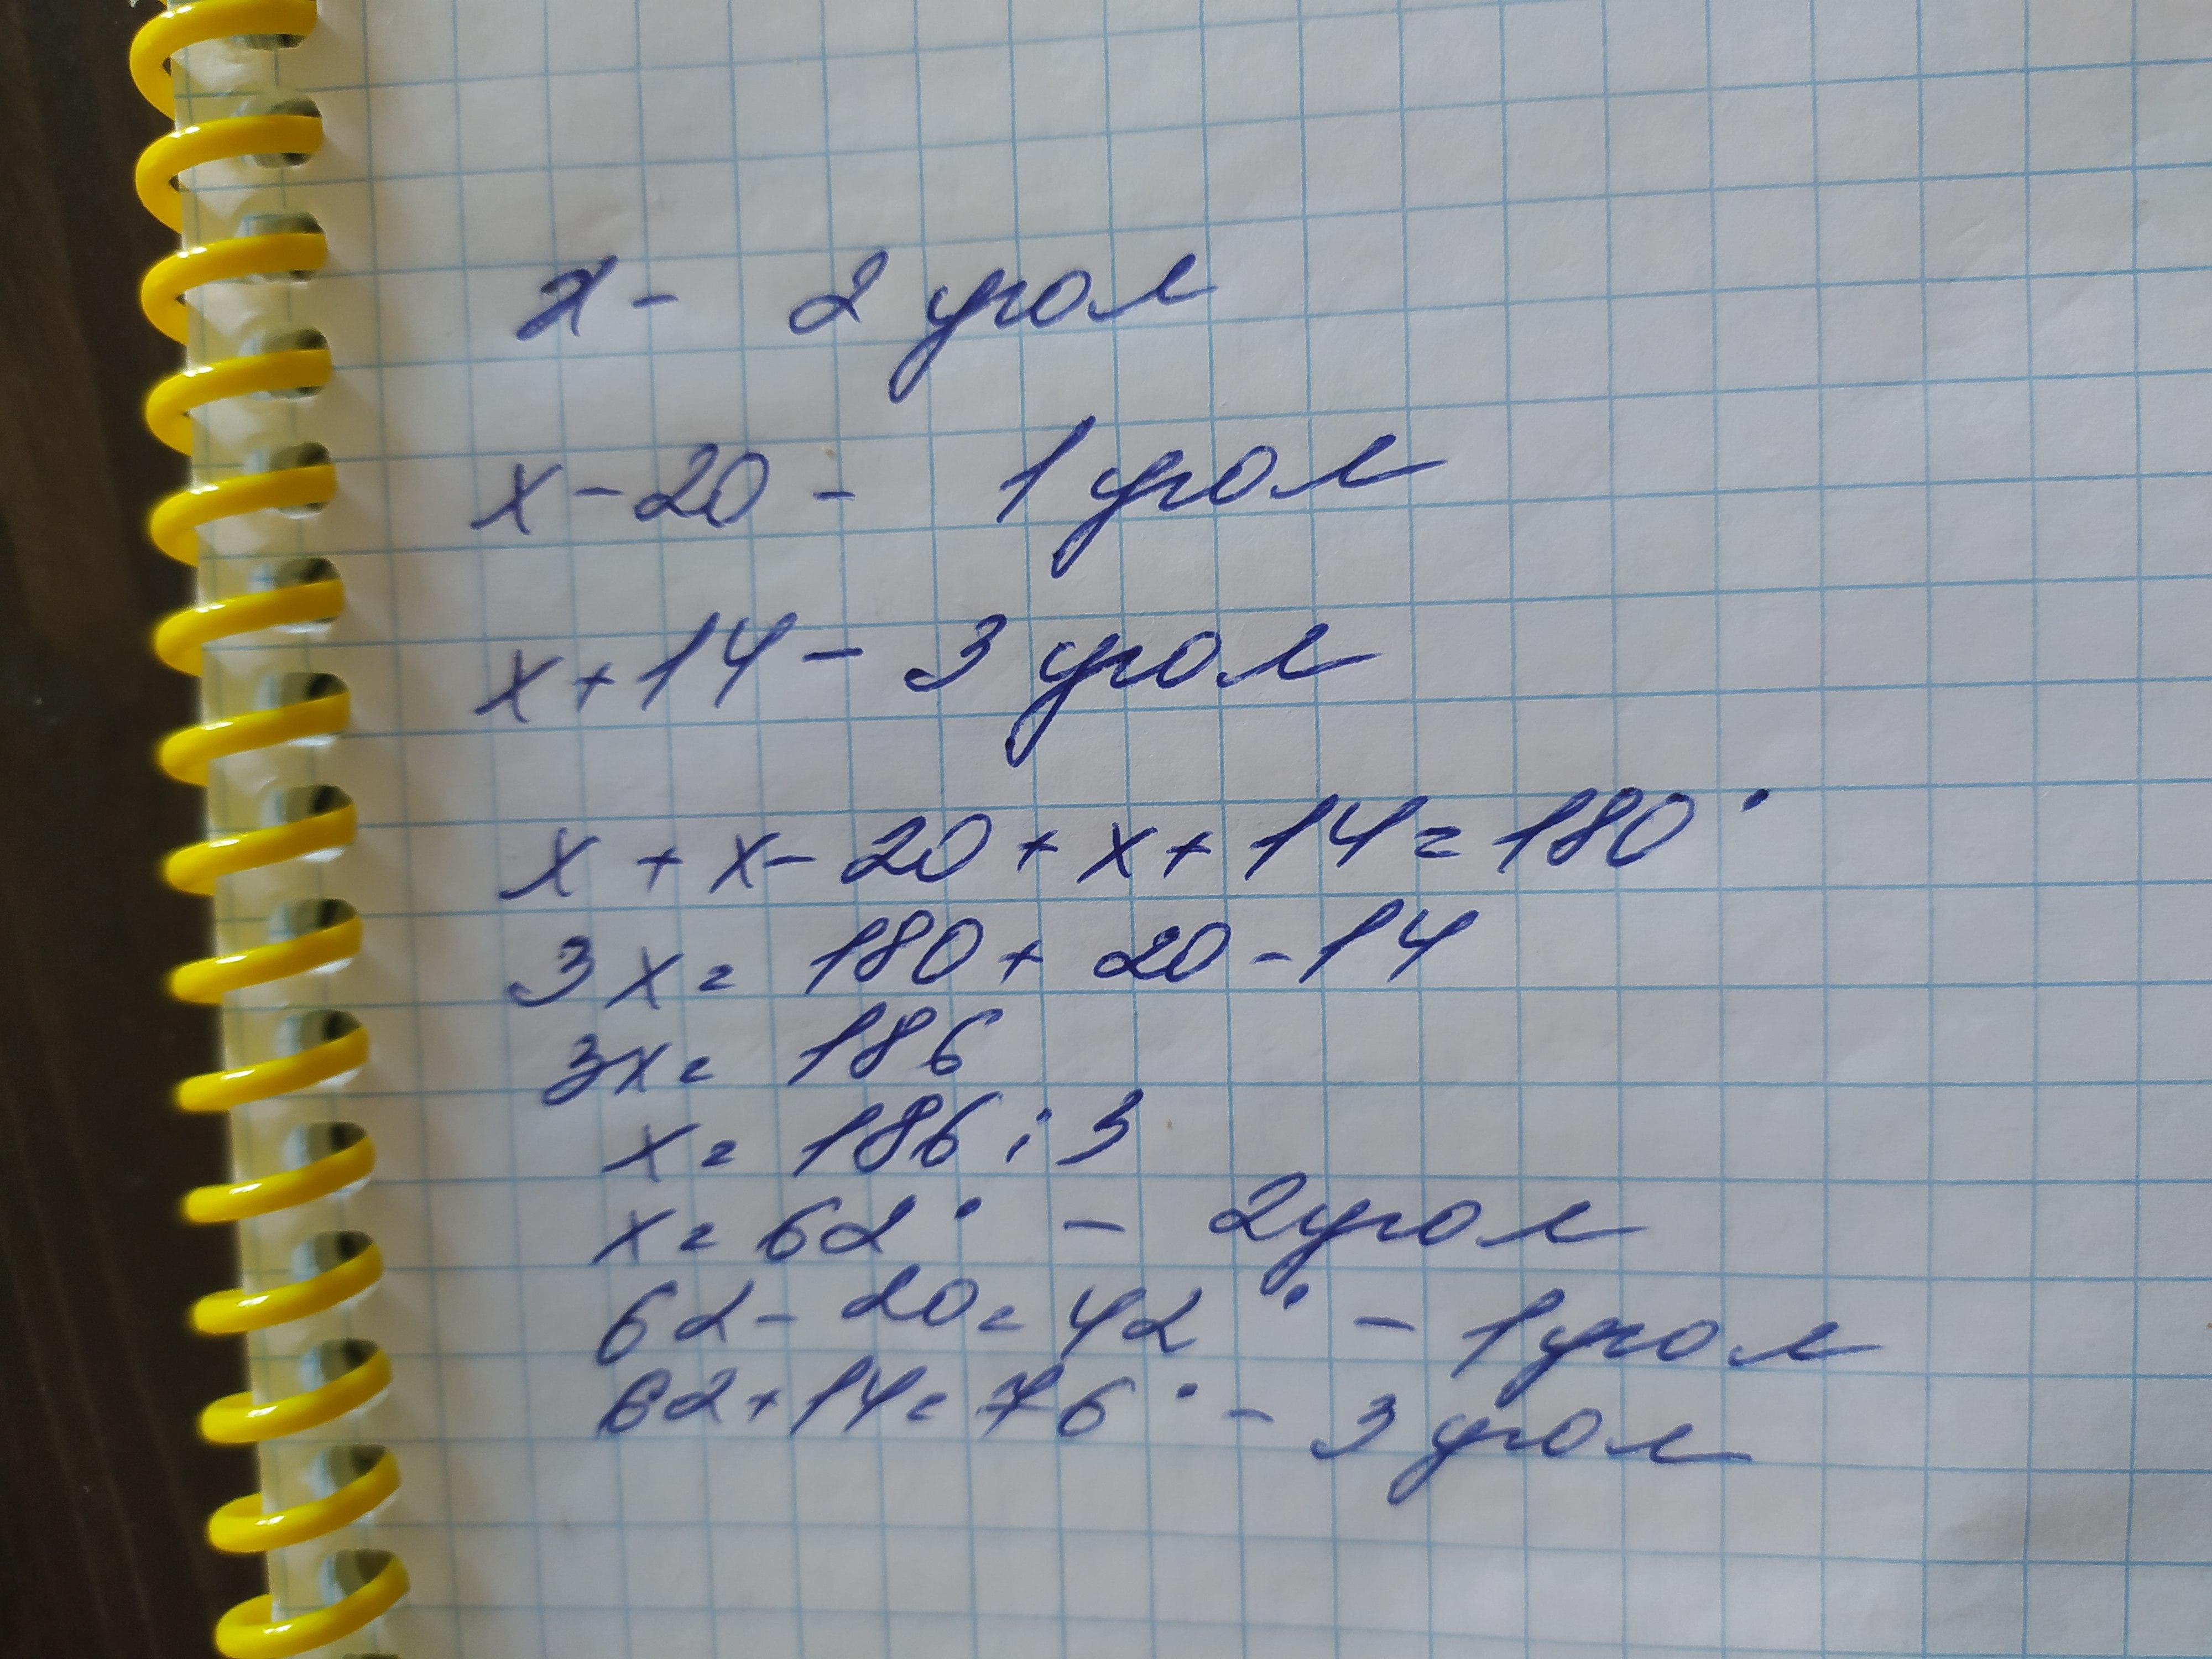 x - 2 угол
x - 20 - 1 угол
x + 14 - 3 угол
x + x - 20 + x + 14 = 180°
3x = 180 + 20 - 14
3x = 186
x = 186 : 3
x = 62° - 2 угол
62 - 20 = 42° - 1 угол
62 + 14 = 76° - 3 угол